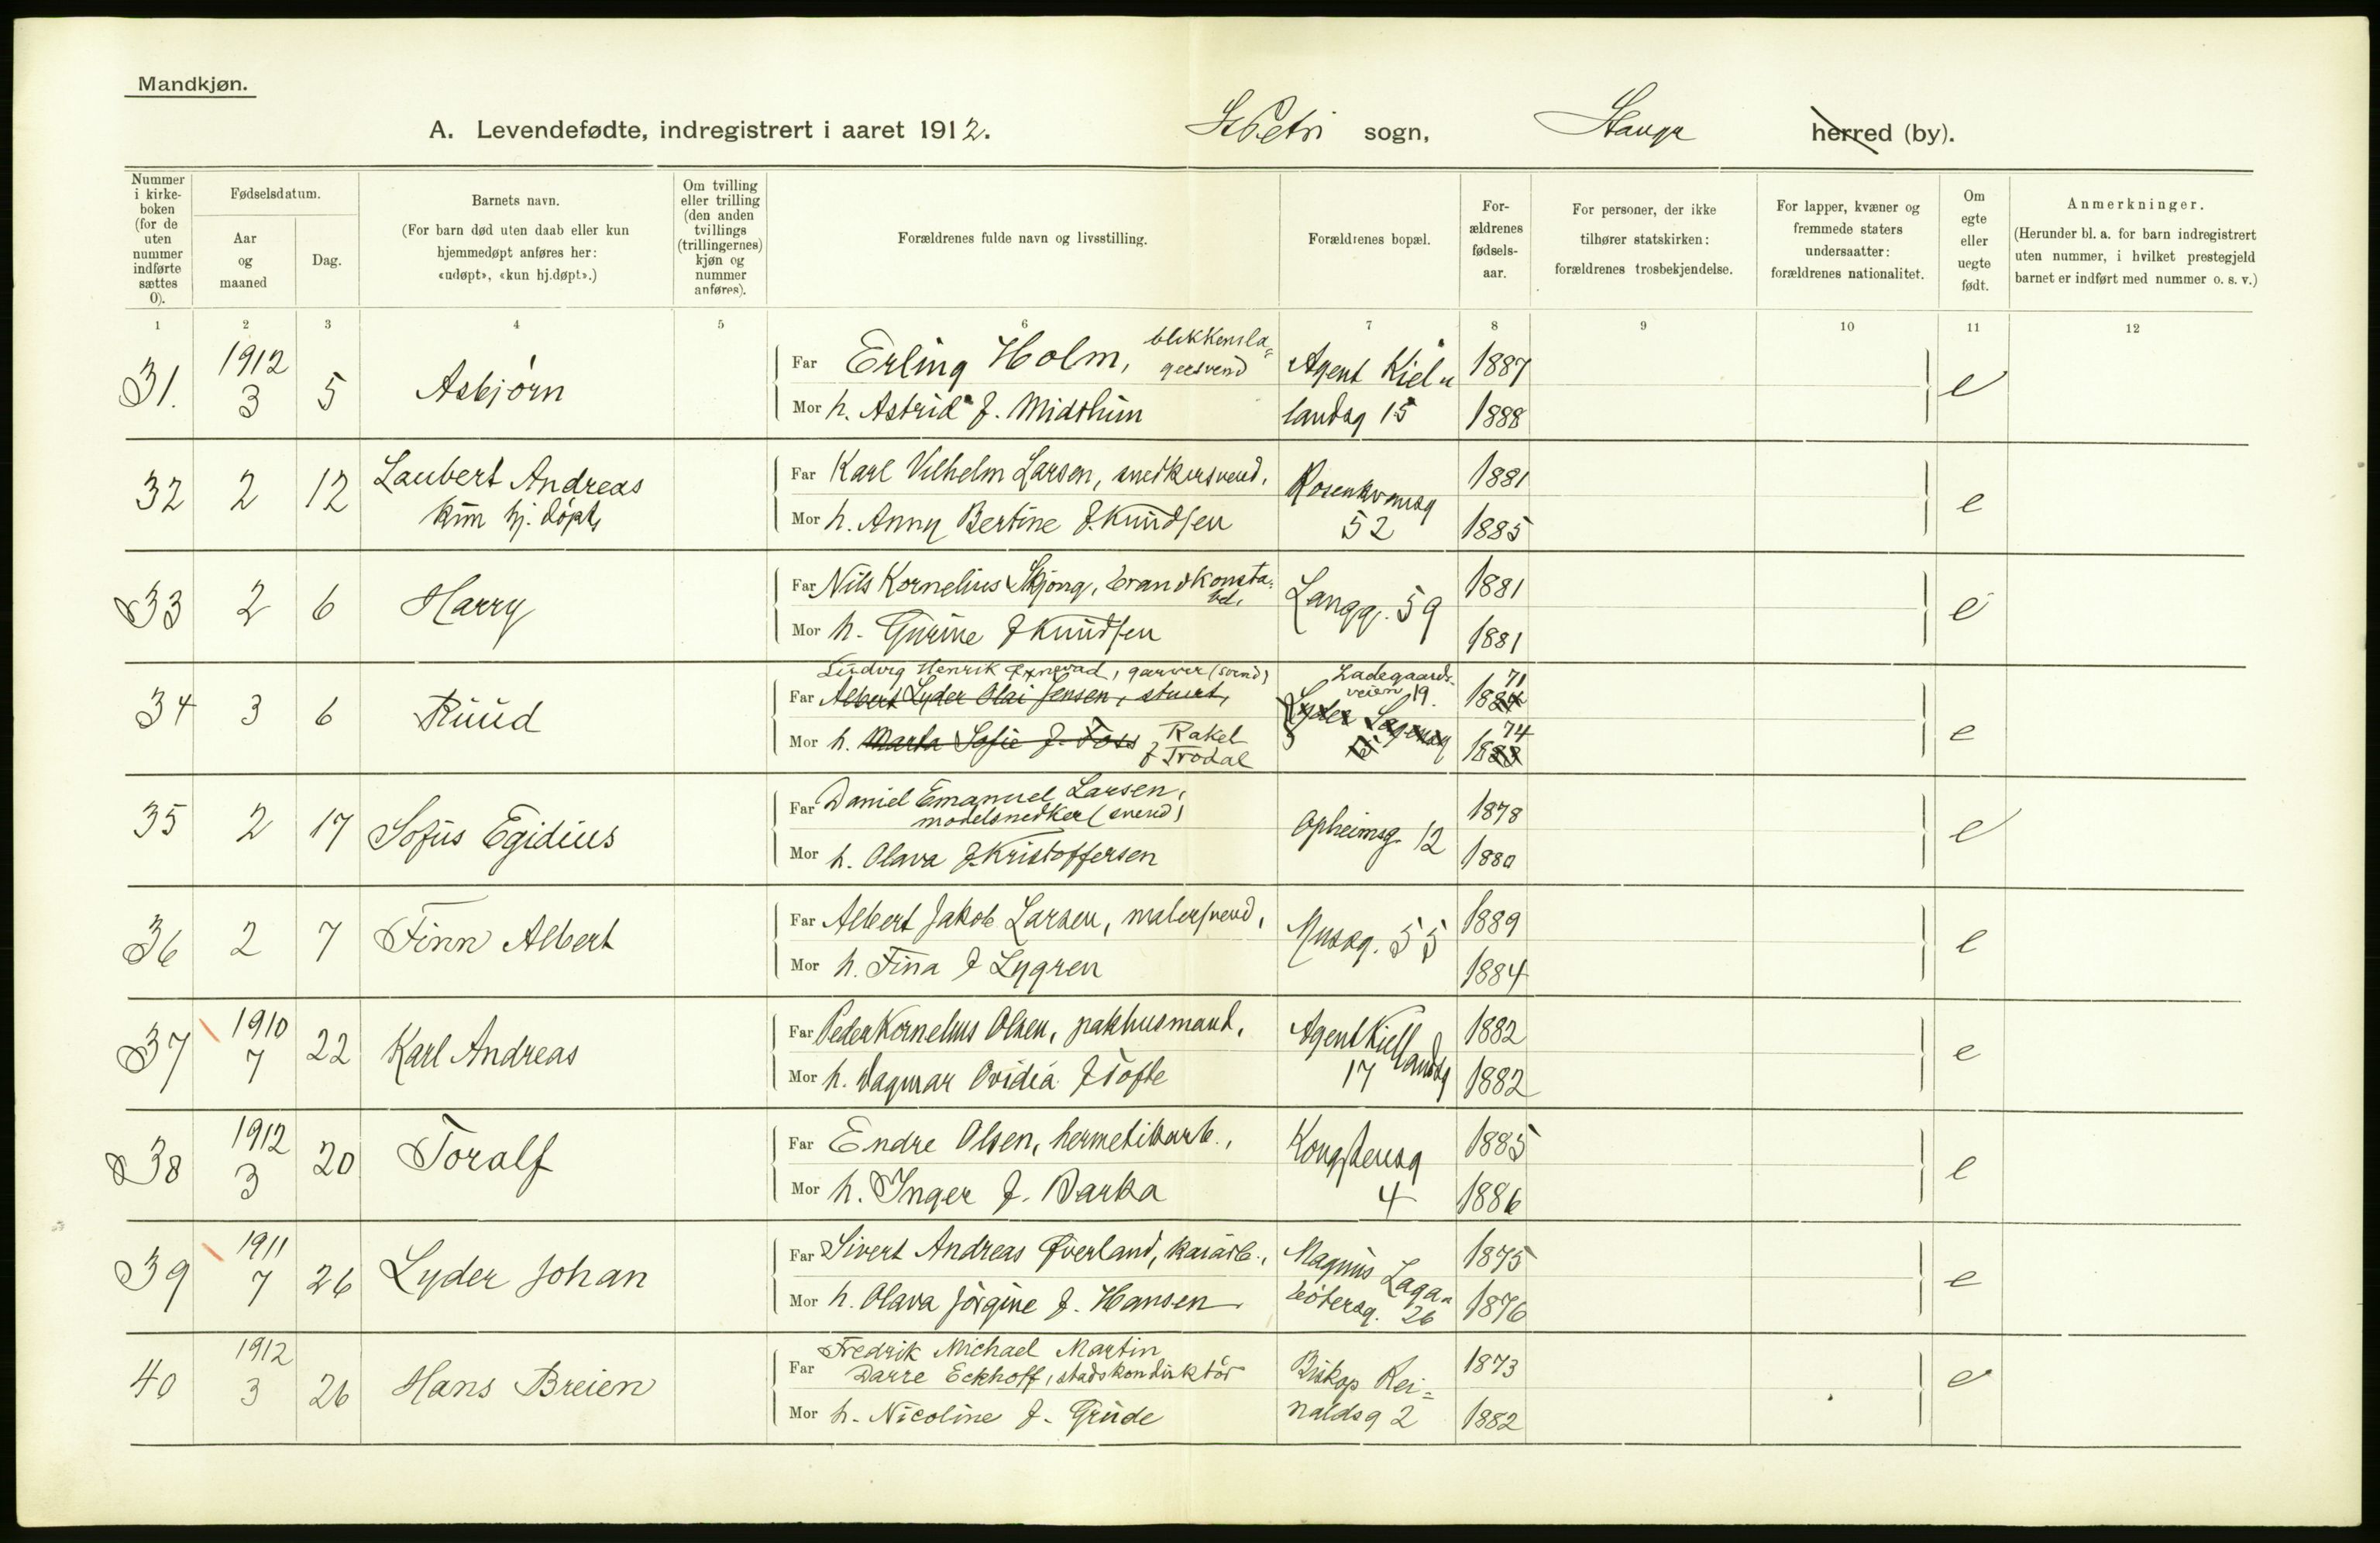 Mandkjøn.
A. Levendefødte, indregistrert i aaret 1912. St Petri sogn, Stavgr herred (by).
Nummer i kirkeboken (for de uten nummer indførte sættes 0).
Fødselsdatum.
Aar og maaned
Dag.
Barnets navn.
(For barn død uten daab eller kun hjemmedøpt anføres her: «udøpt», «kun hj.døpt».)
Om tvilling eller trilling (den anden tvillings (trillingernes) kjøn og nummer anføres).
Forældrenes fulde navn og livsstilling.
Forældrenes bopæl.
For-ældrenes fødsels-aar.
For personer, der ikke tilhører statskirken: forældrenes trosbekjendelse.
For lapper, kvæner og fremmede staters undersaatter: forældrenes nationalitet.
Om egte eller uegte født.
Anmerkninger.
(Herunder bl. a. for barn indregistrert uten nummer, i hvilket prestegjeld barnet er indført med nummer o. s. v.)
1 2 3 4 5 6 7 8 9 10 11 12
31. 1912 3 5 Asbjörn Far Erling Holm, blikkensla= gersvend Agent Kiel„ 1887 e
Mor h. Astrid f. Midthun landsg 15 1888
32 2 12 Laubert Andreas Far Karl Vilhelm Larsen, snedkersvend. Rosenkransg 1881 e
kun hj. döpt, Mor h. Anny Bertine f. Knudsen 52 1885
33 2 6 Harry Far Nils Kornelius Skjong, brandkonsta= bel, Langg. 59 1881 e
Mor h. Gurine f Knudsen 1881
Ludvig Henrik Exnevad, garver (svend) Ladegaards- veien 19. 71
34 3 6 Ruud Far Albert Lyder Olai Jensen, stuert, Lyder Sagensg 1884 e
Mor h. Marta Sofie f. Foss Rakel f Trodal 74 1888
35 2 17 Sofus Egidius Far Daniel Emanuel Larsen, modelsnedker (svend) Opheimsg. 12 1878 e
Mor h. Olava f. Kristoffersen 1880
36 2 7 Finn Albert Far Albert Jakob Larsen, malersvend, Musæg. 55 1889 e
Mor h. Fina f Lygren 1884
37 1910 7 22 Karl Andreas Far Peder Kornelius Olsen, pakhusmand, Agent Kiellandsg 1882 e
Mor h. Dagmar Ovidia f Tofte 17 1882
38 1912 3 20 Toralf Far Endre Olsen, hermetikarb., Kongstensg 1885 e
Mor h. Inger f. Barka 4 1886
39 1911 7 26 Lyder Johan Far Sivert Andreas Øverland, kaiarb., Magnus Laga„ 1875 e
Mor h. Olava Jörgine f. Hansen bötersg. 26 1876
40 1912 3 26 Hans Breien Far Fredrik Michael Martin Darre Eckhoff, stadskonduktör Biskop Rei= 1873 e
Mor h. Nicoline f. Grude naldsg 2 1882